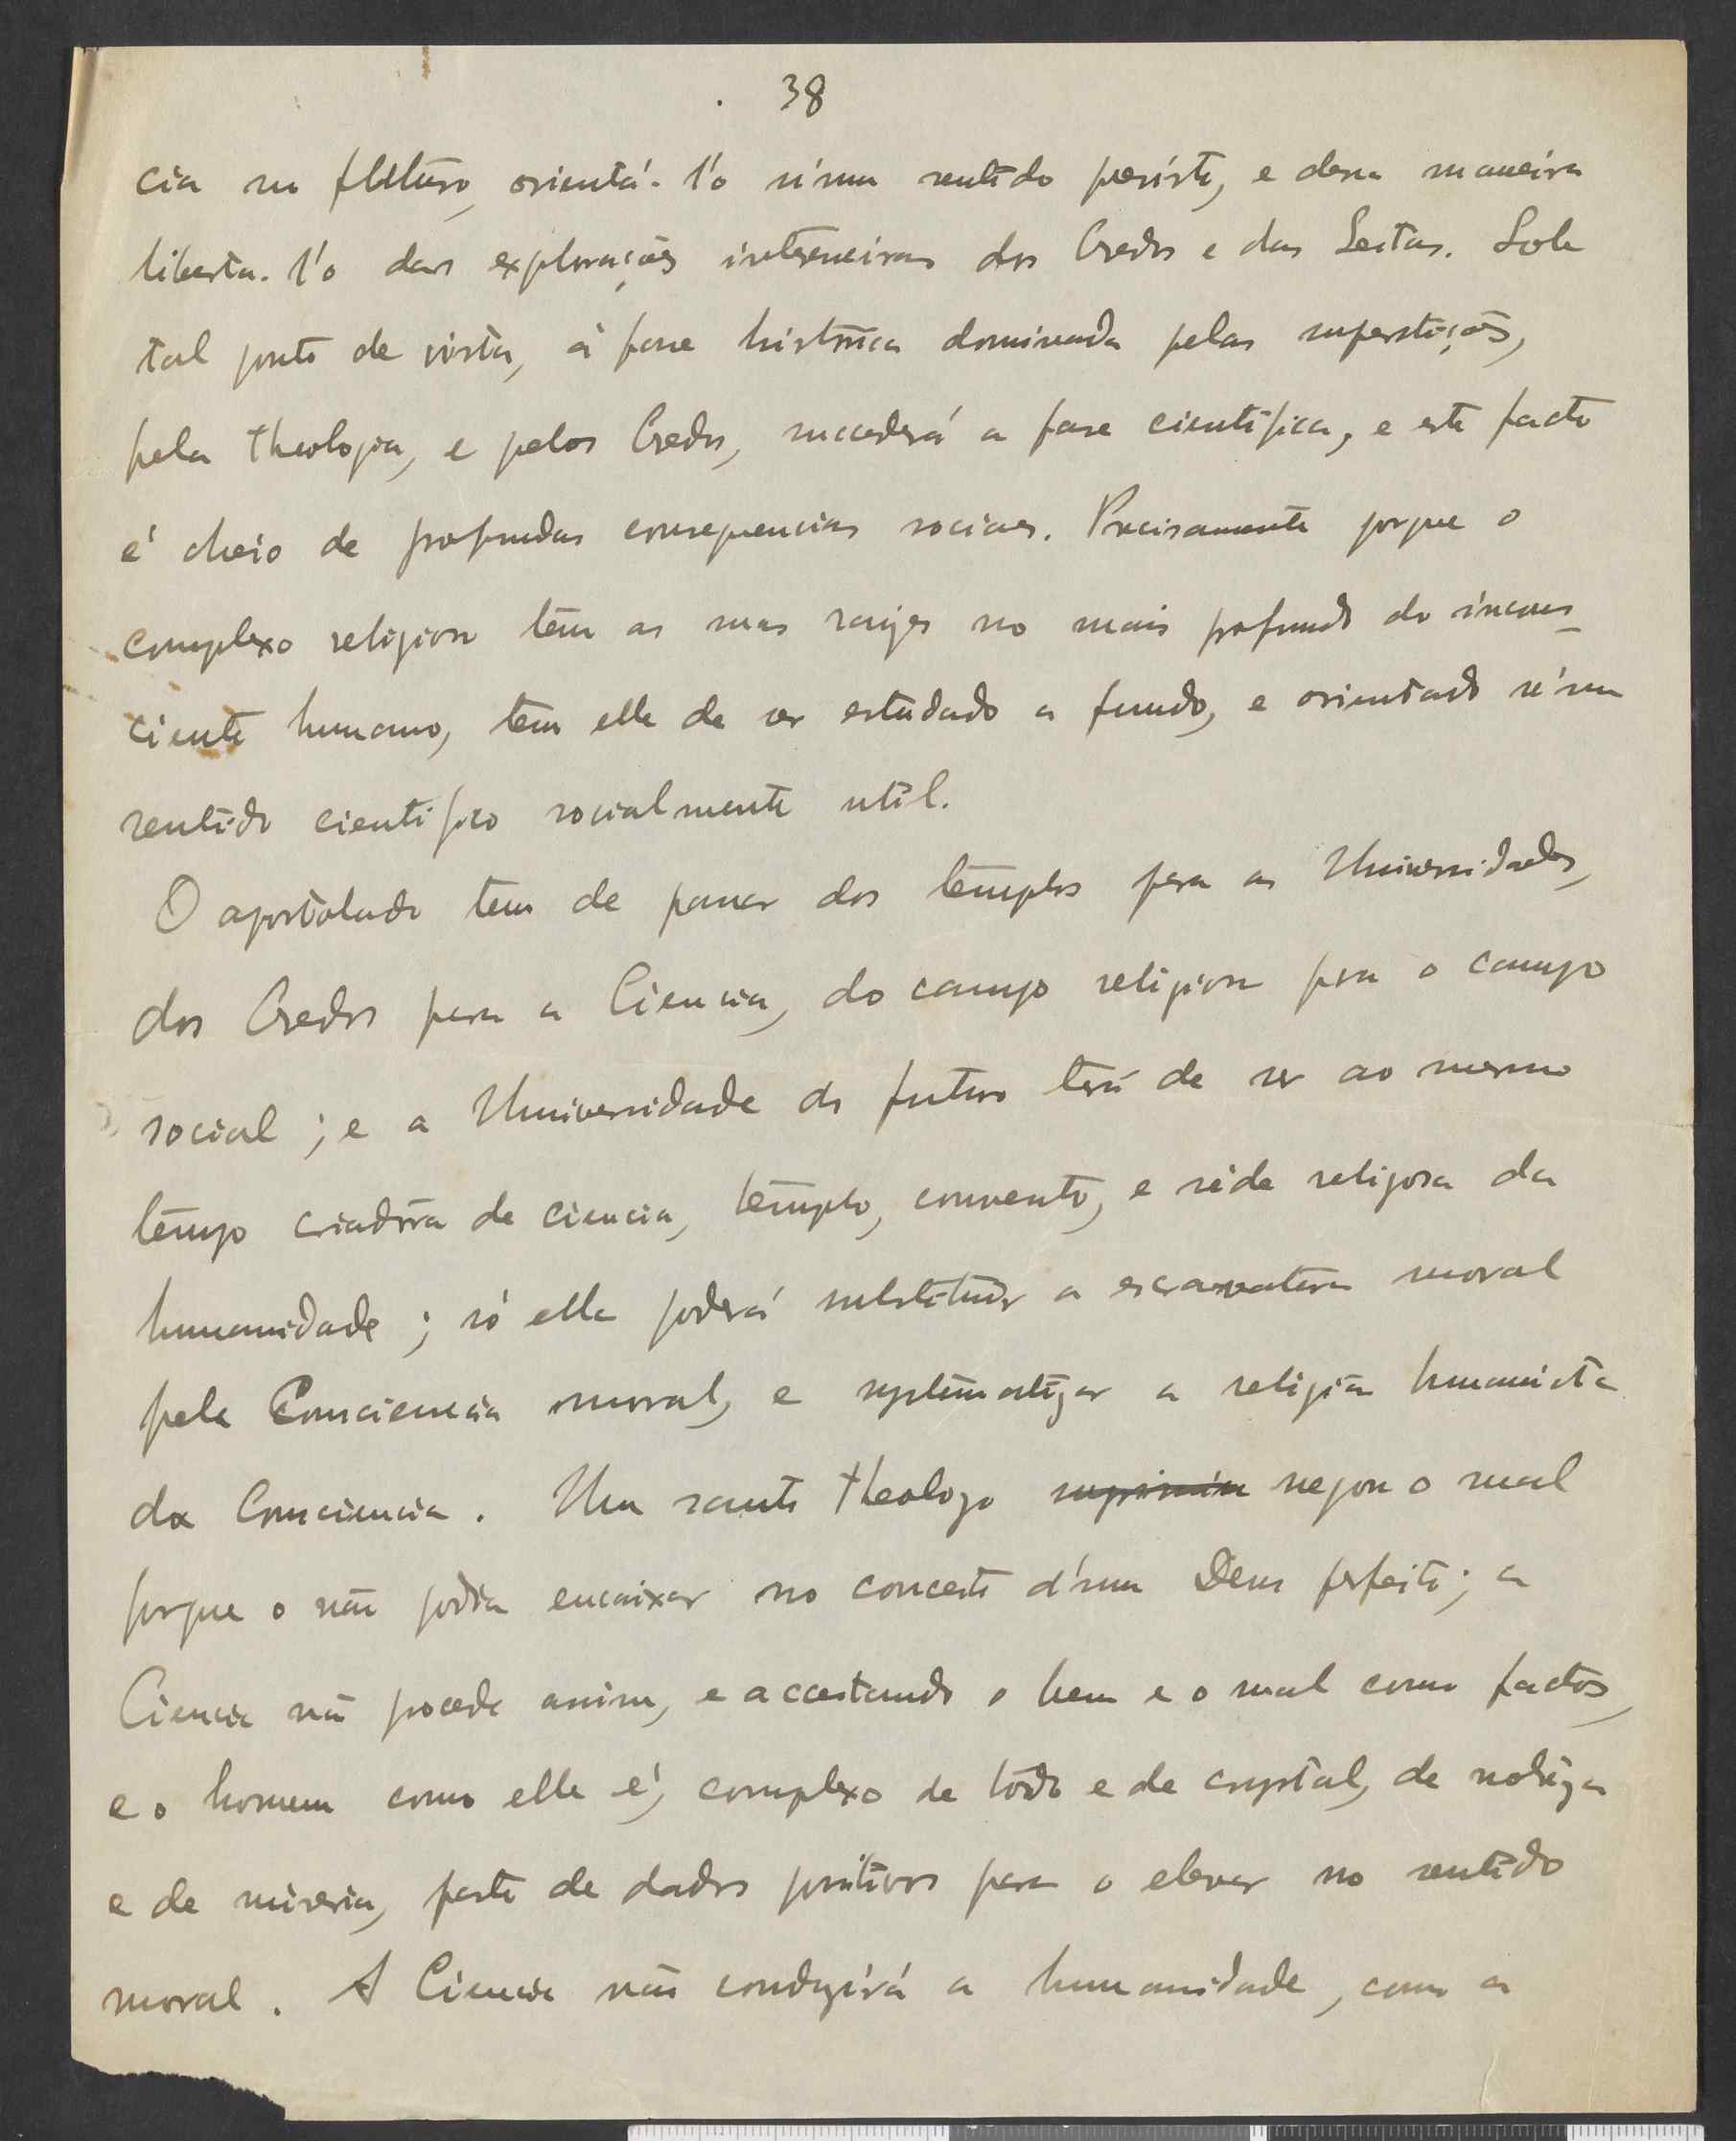 38
cia no futuro, orientá-l'o n'um sentido  e dessa maneira
liberta-l'o das explorações interesseiras dos Credos e das Seitas. Sob
tal ponto de vista, á fase histórica dominada pelas superstições,
pela theologia, e pelos Credos, succederá a fase cientifica, e este facto
é cheio de profundas consequencias sociaes. Precisamente porque o
complexo religioso têm as suas raizes no mais profundo do incons-
ciente humano, tem elle de ser estudado a fundo, e orientado n'um
sentido cientifico socialmente util.
O apostolado tem de passar dos templos para as Universidades,
dos Credos para a Ciencia, do campo religioso para o campo
social; e a Universidade do futuro terá de ser ao mesmo
tempo criadôra de ciencia, templo, convento, e séde religiosa da
humanidade; só ella poderá substituir a escravatura moral
pela Consciencia moral, e systematizar a religião humanista
da Consciencia. Um santo theologo suprimiu negou o mal
porque o não podia encaixar no conceito d'um Deus perfeito; a
Ciencia não procede assim, e acceitando o bem e o mal como factos,
e o homem como elle é, complexo de lôdo e de crystal, de nobreza
e de miseria, parte de dados positivos para o elevar no sentido
moral. A Ciencia não conduzirá a humanidade, como a